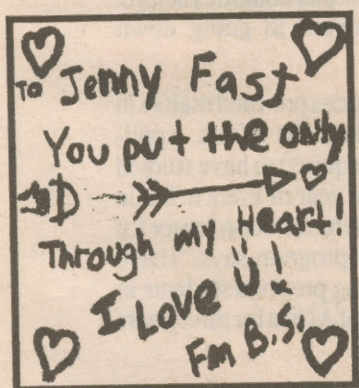 To Jenny Fast
You put the only
Through my Heart!
I Love Ü!
Fm B.S.